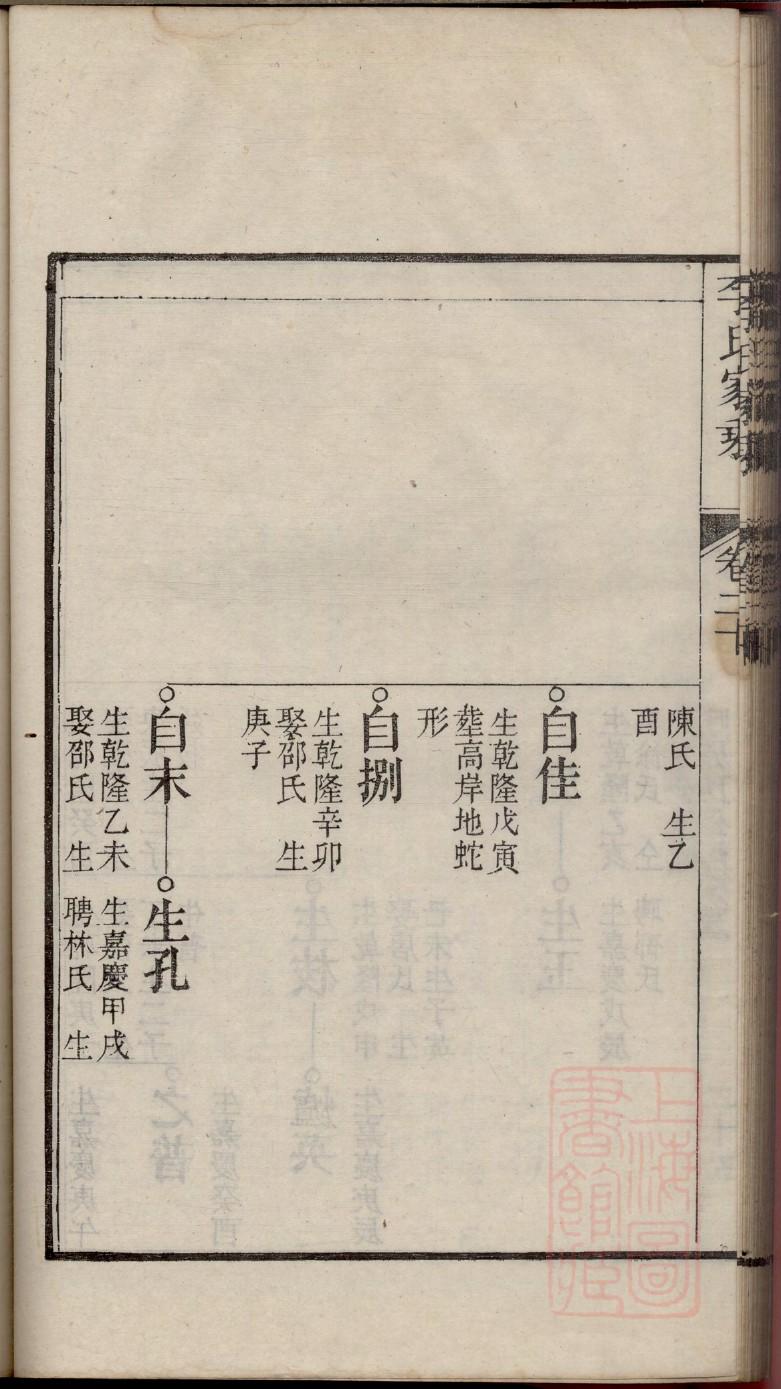 李氏家乘
卷二十
陳氏 生乙
酉
自佳
生乾隆戊寅
塟高岸地蛇
形
自捌
生乾隆辛卯
娶邵氏 生
庚子
自末
生乾隆乙未
娶邵氏 生
生孔
生嘉慶甲戌
聘林氏 生
上海圖
書館藏